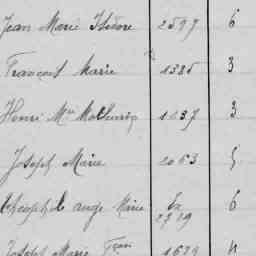 Jean Marie Isidore 2597 6
François Marie 1385 3
Henri Mie Mathurin 1137 3
Joseph Marie 2063 5
Théophile ange Marie Ex 2719 6
Joseph Marie Fran